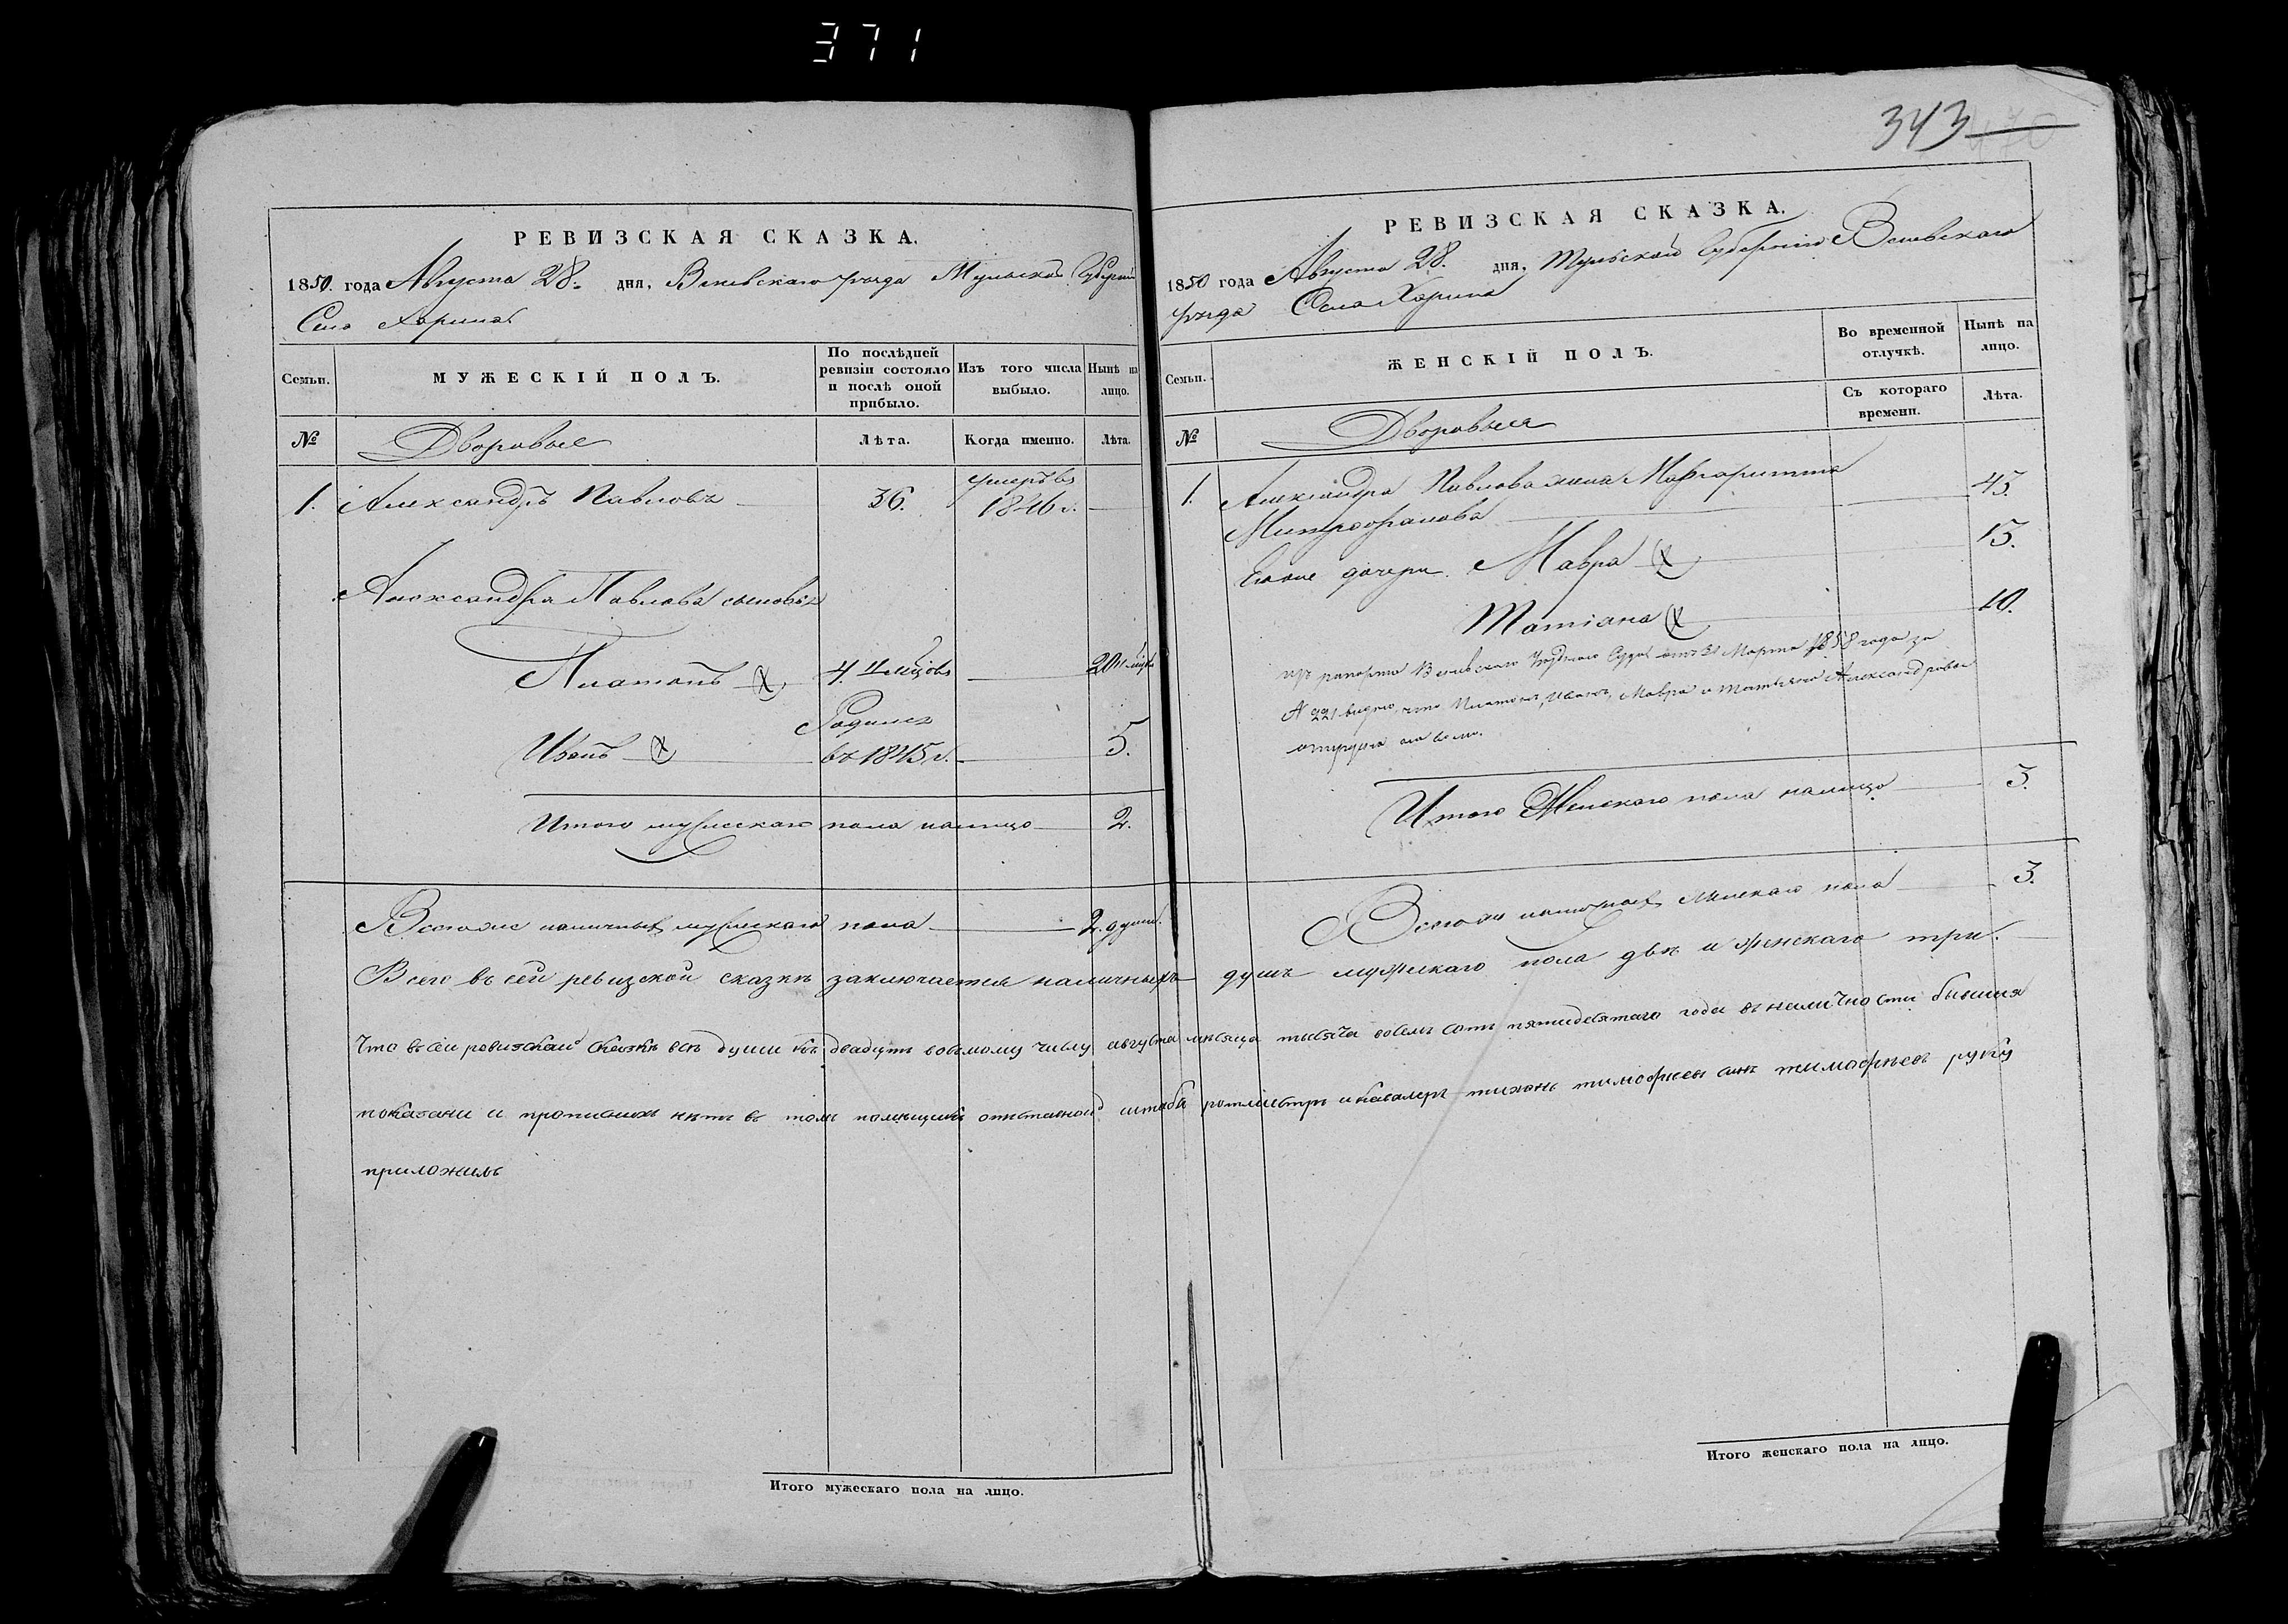 371
343
РЕВИЗСКАЯ СКАЗКА.
1850. года Августа 28. дня, Веневскаго уезда Тульской Губерніи
Село Харино
Семьи.
МУЖЕСКІЙ ПОЛЪ.
По послѣдней ревизіи состояло и послѣ оной прибыло.
Изъ того числа выбыло.
Нынѣ на лицо.
№
Дворовые
Лѣта.
Когда именно.
Лѣта.
1. Александръ Павловъ 36. умеръ въ 1846 г.
Александра Павлова сыновья
Платонъ 4 20
Иванъ Родился въ 1845 г. 5.
Итого мужескаго пола налицо 2.
Всего наличныхъ мужескаго пола 2. души.
РЕВИЗСКАЯ СКАЗКА.
1850 года Августа 28. дня, Тульской Губерніи Веневскаго
уезда Села Харина
Семьи.
ЖЕНСКІЙ ПОЛЪ.
Во временной отлучкѣ.
Нынѣ на лицо.
Съ котораго времени.
Лѣта.
№
Дворовыя
1. Александра Павлова жена Маргаритта
Митрофанова 45.
Ево дочери Мавра 15.
Татіана 10.
из рапорта Веневскаго Суда от 31 Марта 1858 года за
№ 221 видно, что Платонъ, Иванъ, Мавра и Татьяна Александровы
отпущены на волю.
Итого Женскаго пола налицо 3.
Всего наличныхъ женскаго пола 3.
Всего въ сей ревизской сказкѣ заключается наличныхъ душъ мужескаго пола двѣ и женскаго три.
Что въ сеи ревизскаи сказкѣ всѣ души къ двадцать восьмому числу августа мѣсяца тысяча восемь сотъ пятидесятаго года въ наличности бывшия
показани и прописныхъ нѣтъ въ томъ помещикъ отставной штабъ ротмистръ и кавалеръ тихонъ тимофеевъ сынъ тимофеевъ руку
приложилъ
Итого мужескаго пола на лицо.
Итого женскаго пола на лицо.